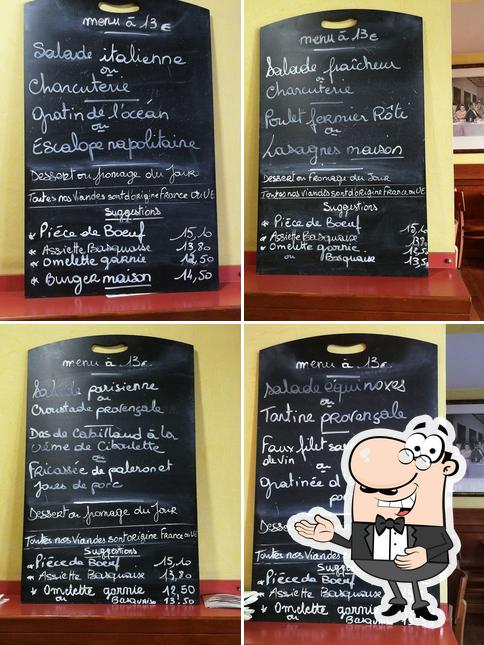 menu à 13€
Salade italienne
ou
Charcuterie
Gratin de l'océan
ou
Escalope napolitaine
Dessert ou fromage du jour
Toutes nos Viandes sont d'origine France ou UE
Suggestions
* Pièce de Boeuf 15,10
* Assiette Basquaise 13,80
* Omelette garnie 12,50
* Burger maison 14,50
menu à 13€
Salade fraîcheur
ou
Charcuterie
Poulet fermier Rôti
ou
Lasagnes maison
Dessert ou fromage du Jour
Toutes nos Viandes sont d'origine France ou UE
Suggestions
* Pièce de Boeuf 15,10
* Assiette Basquaise
* Omelette garnie 12,50
ou Basquaise 13,5
menu à 13€
Salade parisienne
ou
Croustade provençale
Dos de Cabillaud à la
crème de Ciboulette
ou
Fricassée de paleron et
Joues de porc
Dessert ou fromage du Jour
Toutes nos Viandes sont d'origine France ou UE
Suggestions
* Pièce de Boeuf 15,10
* Assiette Basquaise 13,80
* Omelette garnie 12,50
ou Basquaise 13,50
menu à 13€
Salade équinoxes
ou
Tartine provençale
Faux filet sau
de vin
ou
Gratinée d
po
Desse
Toutes nos Viandes
Sugg
* Pièce de Boeuf
* Assiette Basquaise
* Omelette garnie
ou